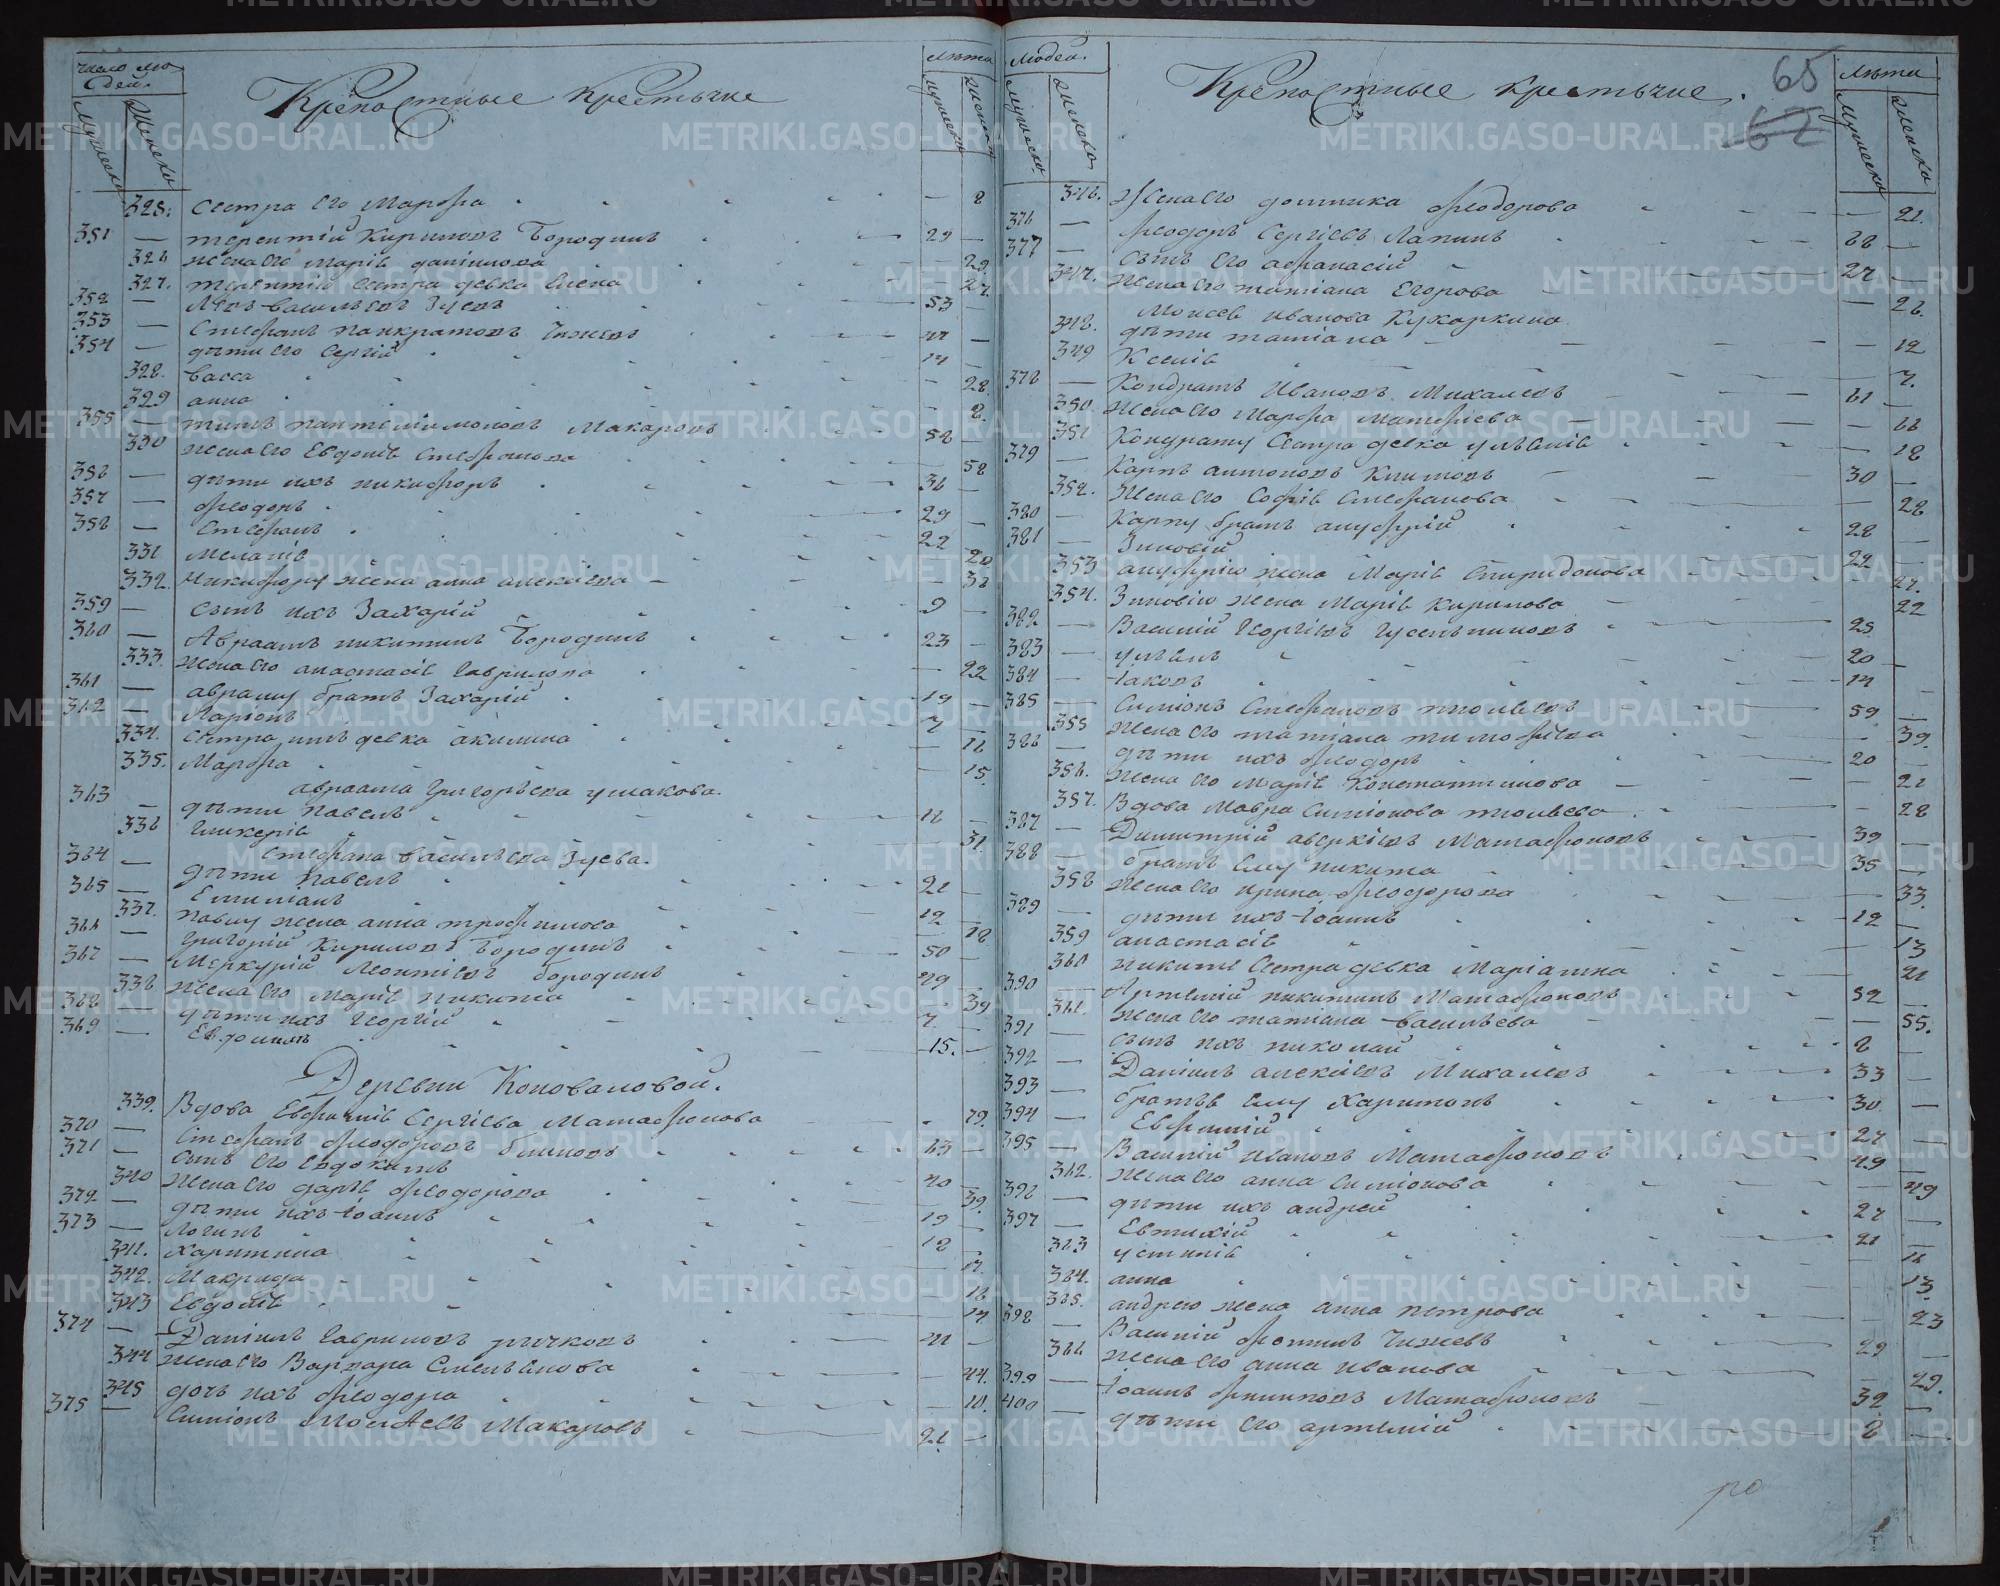 число лю
дей.
Мужеска
Женска
Крѣпостные крестьяне
Лѣта
мужеска
женска
325. Сестра его Марфа 8
351 — Терентій Кириловъ Бородинъ 29 —
326 Жена его Марія Даніилова — 29.
327. Терентію сестра девка Елена — 27.
352 — Левъ Васильевъ Зуевъ 53 —
353 — Стефанъ Панкратовъ Чижевъ 41 —
354 — Дѣти его Сергій 14 —
328. Васса — 28.
329 Анна — 8.
355 — Титъ Пантелімоновъ Макаровъ 58 —
330 Жена его Евдокія Стефанова — 58
356 — Дѣти ихъ Никифоръ 36 —
357 — Феодоръ 29 —
358 — Стефанъ 22
331 Меланія — 20
332. Никифору жена Анна Алексіева — 38
359 — Сынъ ихъ Захарій 9 —
360 — Авраамъ Никитинъ Бородинъ 23 —
333. Жена его Анастасія Гаврилова — 22
361 — Авраму братъ Захарій 19 —
362 — Ларіонъ 7 —
334. Сестра имъ девка Акилина — 18
335. Марфа — 15.
Авраама Григорьева Ушакова.
363 — Дѣти Павелъ 18 —
336 Гликерія — 31
Стефана Васильева Зуева.
364 — Дѣти Павелъ 21 —
365 — Емиліанъ 12 —
337. Павлу жена Анна Трофимова — 18
366 — Григорій Кириловъ Бородинъ 50 —
367 — Меркурій Леонтіевъ Бородинъ 49 —
338 Жена его Марія Никитина — 39
368 — Дѣти ихъ Георгій 7. —
369 — Евдокимъ 15. —
Деревни Коноваловой.
339. Вдова Евфимія Сергіева Матафонова — 79.
370 — Стефанъ Феодоровъ Блиновъ 63 —
371 — Сынъ его Евдокимъ 40 —
340 Жена его Дарія Феодорова — 39.
372 — Дѣти ихъ Іоаннъ 19 —
373 — Логинъ 18 —
341. Харитина — 17.
342. Макрида — 16
343 Евдокія — 14
374 — Даніилъ Гавриловъ Рычковъ 41 —
344 Жена его Варвара Емельянова — 44.
345 Дочь ихъ Феодора — 10.
375 — Симіонъ Моисеевъ Макаровъ 21 —
людей.
Мужеска
Женска
Крѣпостные крестьяне.
65
62
Лѣта
Мужеска
Женска
346. Жена его Домника Феодорова — 21.
376 — Феодоръ Сергіевъ Лапинъ 68 —
377 — Сынъ его Афанасій 27 —
347. Жена его Татіана Егорова — 26.
Моисея Иванова Кукаркина
348. Дѣти Татіана — 12
349 Ксенія — 7.
378 — Кондратъ Ивановъ Михалевъ 61 —
350. Жена его Марфа Матфіева — 66
351 Кондрату сестра девка Уліанія — 18
379 — Карпъ Антоновъ Климовъ 30 —
352. Жена его Софія Стефанова — 28
380 — Карпу братъ Ануфрій 28 —
381 — Зиновій 22 —
353 Ануфрію жена Марія Спиридонова — 27.
354. Зиновію жена Марія Кирилова — 22
382 — Василій Георгіевъ Гусельниковъ 25
383 — Уліанъ 20 —
384 — Іаковъ 14 —
385 — Симіонъ Стефановъ Тюлневъ 59 —
355 Жена его Татіана Тимофіева — 39.
386 — Дѣти ихъ Феодоръ 20 —
356. Жена его Марія Константинова — 21
357. Вдова Мавра Симіонова — 28
387 — Димитрій Аверкіевъ Матафоновъ 39 —
388 — братъ ему Никита 35 —
358 Жена его Ирина Феодорова — 33.
389 — Дѣти ихъ Іоаннъ 12 —
359 Анастасія — 13
360 Никите сестра девка Маріамна — 21
390 — Артемій Никитинъ Матафоновъ 52 —
361. Жена его Татіана Васильева — 55.
391 — Сынъ ихъ Николай 8 —
392 — Даніилъ Алексіевъ Михалевъ 33 —
393 — братья ему Харитонъ 30 —
394 — Евфимій 27 —
395 — Василій Ивановъ Матафоновъ 49 —
362. Жена его Анна Симіонова — 49
396 — Дѣти ихъ Андрей 27 —
397 — Евтихій 21 —
363 Устинія — 18
364. Анна — 13.
365. Андрею жена Анна Петрова — 23
398 — Василій Фотинъ Чижевъ 29 —
366 Жена его Анна Иванова — 29.
399 — Іоаннъ Филиповъ Матафоновъ 32 —
400 — Дѣти его Артемій 8 —